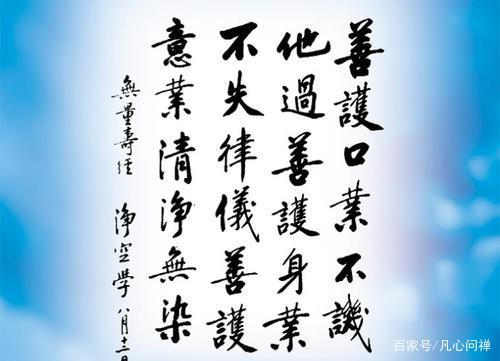 善護口業不譏
他過善護身業
不失律儀善護
意業清淨無染
無量壽經 淨空學 八月十二日
百家号/凡心问禅